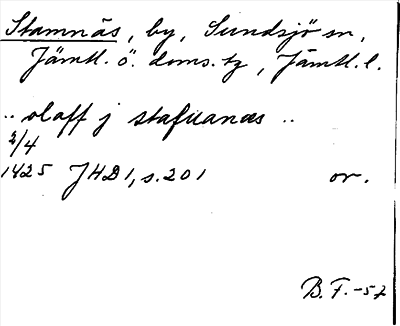 Stamnäs, by, Sundsjö sn,
Jämtl. ö. doms. tg, Jämtl. l.
.. olaff j stafuanæs ..
2/4
1425 JHD 1, s. 201 or.
B. F. -57